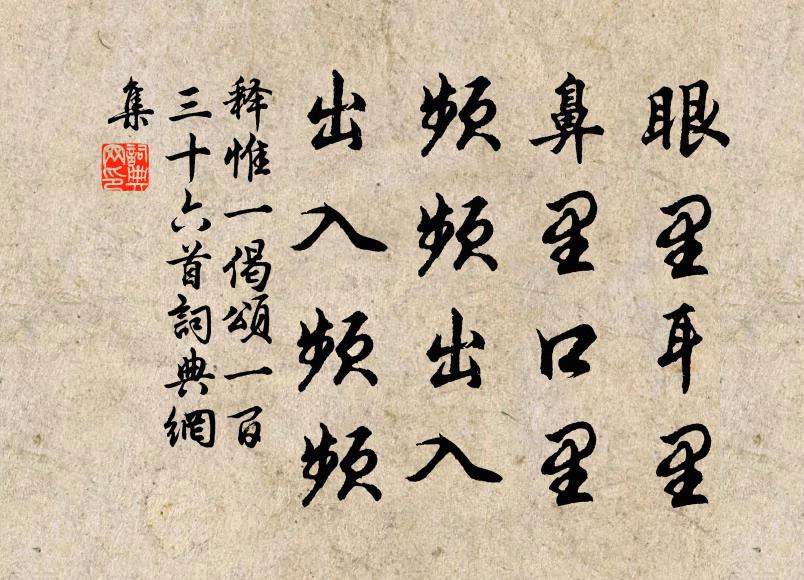 眼里耳里
鼻里口里
频频出入
出入频频
释惟一偈頌一百
三十六首詞典網
集
詞典
网印